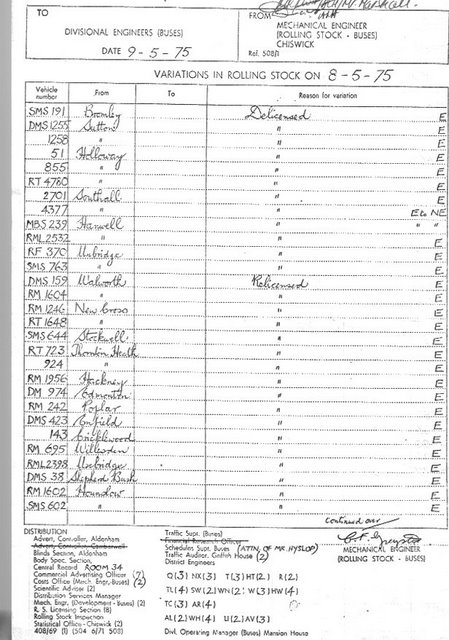 TO
FROM
DIVISIONAL ENGINEERS (BUSES)
MECHANICAL ENGINEER
(ROLLING STOCK - BUSES)
CHISWICK
DATE 9-5-75
Ref. 508/1
VARIATIONS IN ROLLING STOCK ON 8-5-75
Vehicle number From To Reason for variation
SMS 191 Bromley Delicensed E
DMS 1255 Sutton " E
1258 " " E
51 Holloway " E
855 " " E
RT 4760 " " E
2701 Southall " E
4377 " " E to NE
MBS 239 Hanwell " " "
RML 2532 " " E
RF 370 Uxbridge " E
SMS 763 " " E
DMS 159 Walworth Relicensed E
RM 1604 " " E
RM 1246 New Cross " E
RT 1648 " " E
SMS 644 Stockwell " E
RT 723 Thornton Heath " E
924 " " E
RM 1956 Hackney " E
DM 974 Edmonton " E
RM 242 Poplar " E
DMS 423 Enfield " E
143 Cricklewood " E
RM 695 Willesden " E
RML 2398 Uxbridge " E
DMS 38 Shepherd Bush " E
RM 1602 Hounslow " E
SMS 602 " " E
continued over
DISTRIBUTION
Advert. Controller, Aldenham
Advert. Controller, Camberwell
Blinds Section, Aldenham
Body Spec. Section,
Central Record ROOM 34
Commercial Advertising Officer (7)
Costs Office (Mech. Engr.-Buses) (2)
Scientific Adviser (2)
Distribution Services Manager
Mech. Engr. (Development - Buses) (2)
R. S. Licensing Section (8)
Rolling Stock Inspection
Statistical Office - Chiswick (2)
408/69 (1) (504 6/71 508)
Traffic Supt. (Buses)
Financial Research Officer
Schedules Supt. Buses (ATTN. OF MR. HYSLOP)
Traffic Auditor, Griffith House (2)
District Engineers
Q (3) NX (3) T (3) HT (2) R (2)
TL (4) SW (2) WN (2) W (3) HW (4)
TC (3) AR (4)
AL (2) WH (4) U (2) AV (3)
Divl. Operating Manager (Buses) Mansion House
MECHANICAL ENGINEER
(ROLLING STOCK - BUSES)